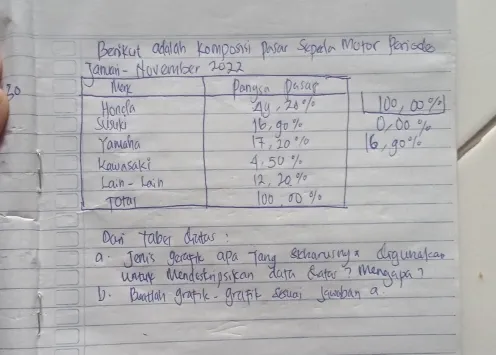 30
Berikut adalah komposisi pasar Sepeda Motor Periode
Januari - November 2022
Merk Pangsa Pasar
Honda 49,20% 100,00%
Suzuki 16,90% 0,00%
Yamaha 17,20% 16,90%
Kawasaki 4,50%
Lain - Lain 12,20%
Total 100,00%
Dari tabel diatas :
a. Jenis grafik apa yang seharusnya digunakan
untuk mendeskripsikan data diatas? Mengapa?
b. Buatlah grafik - grafik sesuai jawaban a.